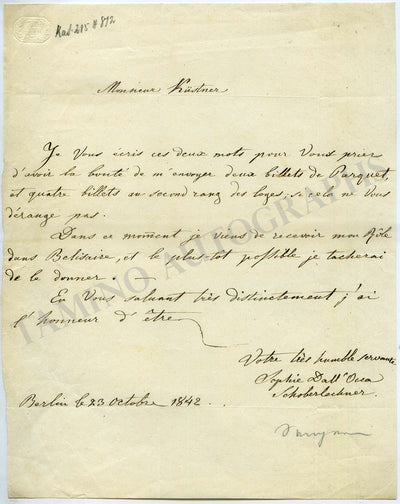 Kat. 215 # 872
Monsieur Küstner
Je Vous écris ces deux mots pour Vous prier
d'avoir la bonté de m'envoyer deux billets de Parquet,
et quatre billets au second rang des loges, si cela ne Vous
dérange pas.
Dans ce moment je viens de recevoir mon Rôle
dans Belisaire, et le plus-tot possible je tacherai
de le donner.
En Vous saluant très distinctement j'ai
l'honneur d'être
Votre très humble servante
Sophie Dall'Occa
Schoberlechner.
Berlin le 23 Octobre 1842.
TAMINO AUTOGRAPHS